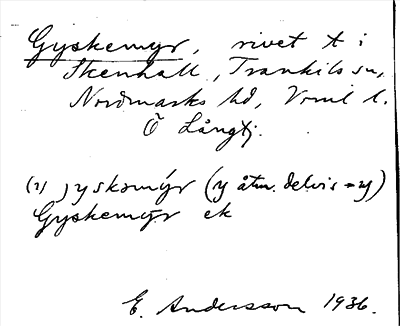 Gyskemyr, rivet t i
Stenhall, Trankils sn,
Nordmarks hd, Vrml l.
Ö Långtj.
(1) jyskəmýr (y åtm. delvis =y)
Gyskemyr ek
E. Andersson 1936.